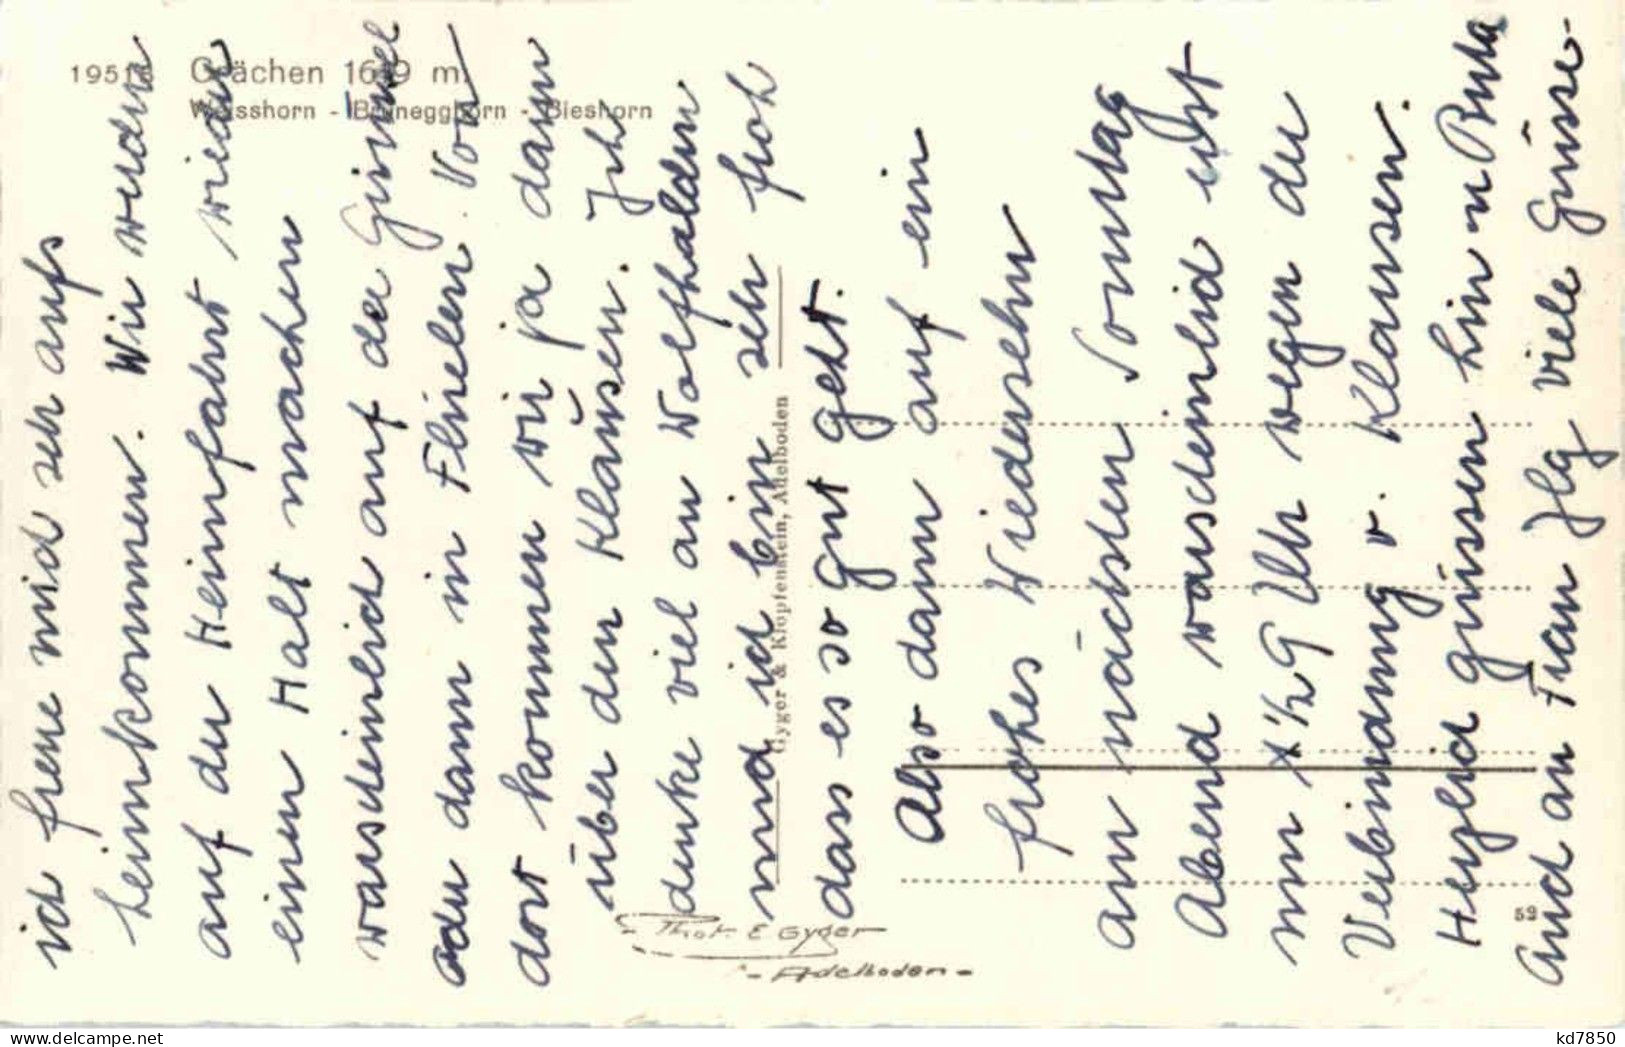 Grächen 1619 m.
Weisshorn - Brunegghorn - Bieshorn
ich freue mich sehr aufs
heimkommen. Wir werden
auf der Heimfahrt wieder
einen Halt machen
warscheinlich auf der Grimsel
oder dann in Flüelen. Von
dort kommen wir ja dann
über den Klausen. Ich
denke viel an Wolfhalden
und ich bin sehr froh
dass es so gut geht.
Also dann auf ein
frohes Wiedersehn
am nächsten Sonntag
Abend warscheinlich erst
um ½ 9 Uhr wegen der
Verbindung v. Klausen.
Herzlich grüssen hin u
Auch an Frau Ilg viele Grüsse.
Gyger & Klopfenstein, Adelboden
Phot. E Gyger
- Adelboden -
59
kd7850